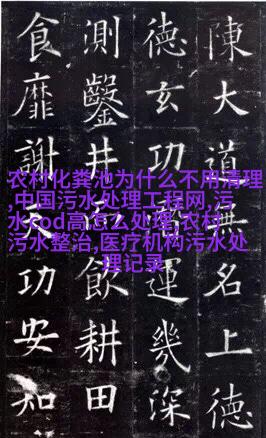 陳大道無名上德
德玄功運幾深
測鑿井飲耕田
食靡謝天功安知
农村化粪池为什么不用清理
,中国污水处理工程网,污
水cod高怎么处理,农村
污水整治,医疗机构污水处
理记录